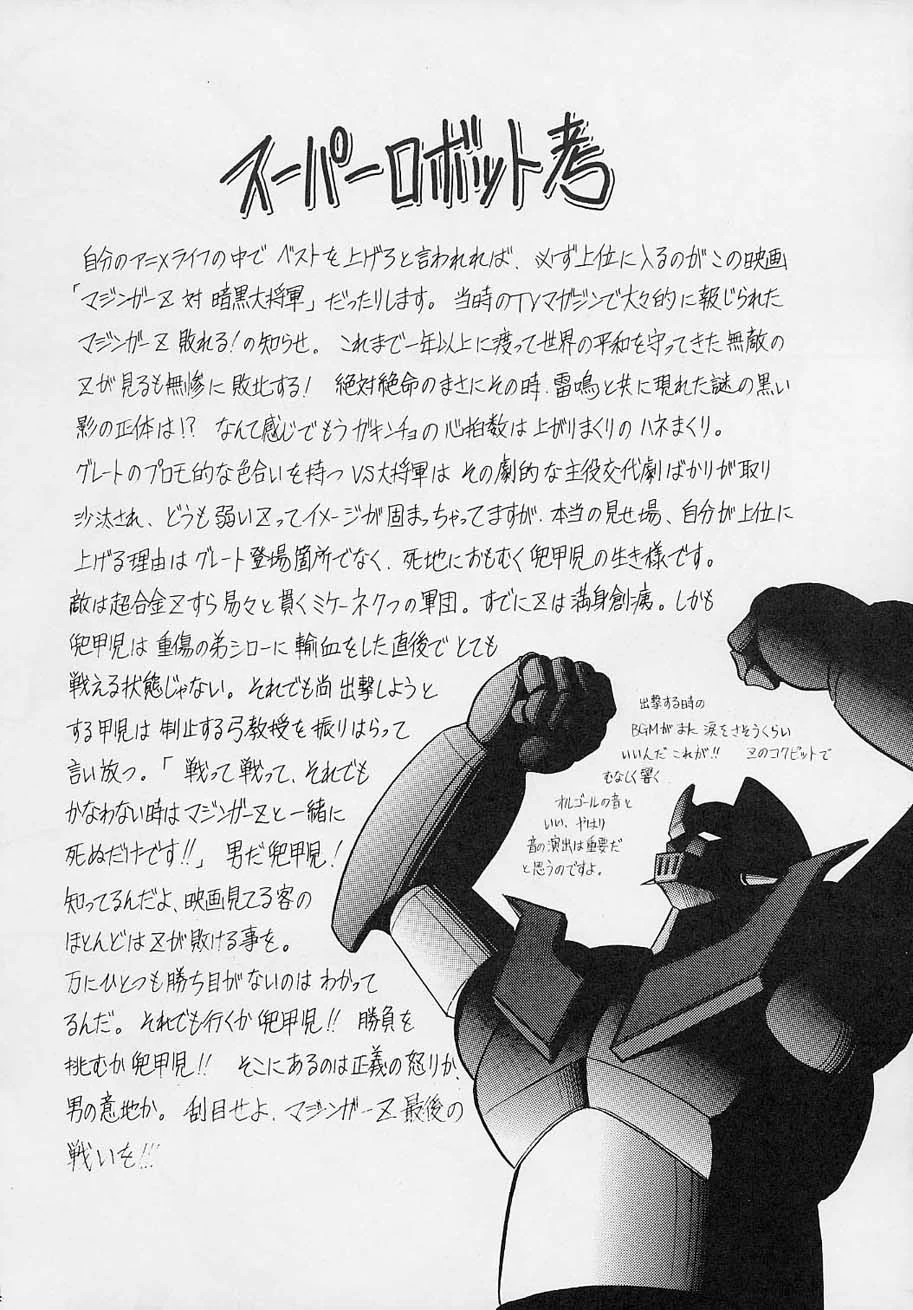 スーパーロボット考
自分のアニメライフの中で ベストを上げろと言われれば、必ず上位に入るのがこの映画
「マジンガーZ 対 暗黒大将軍」だったりします。当時のTVマガジンで大々的に報じられた
マジンガーZ 敗れる!の知らせ。これまで一年以上に渡って世界の平和を守ってきた無敵の
Zが見るも無惨に敗北する! 絶対絶命のまさにその時、雷鳴と共に現れた謎の黒い
影の正体は!? なんて感じでもうガキンチョの心拍数は上がりまくりのハネまくり。
グレートのプロモ的な色合いを持つ VS大将軍は その劇的な主役交代劇ばかりが取り
沙汰され、どうも弱いZってイメージが固まっちゃってますが、本当の見せ場、自分が上位に
上げる理由はグレート登場箇所でなく、死地におもむく兜甲児の生き様です。
敵は超合金Zすら易々と貫くミケーネ7つの軍団。すでにZは満身創痍。しかも
兜甲児は 重傷の弟シローに 輸血をした直後で とても
戦える状態じゃない。それでも尚 出撃しようと
する甲児は 制止する弓教授を 振りはらって
言い放つ。「戦って戦って、それでも
かなわない時は マジンガーZと一緒に
死ぬだけです!!」男だ兜甲児!
知ってるんだよ、映画見てる客の
ほとんどは Zが敗ける事を。
万にひとつも勝ち目がないのは わかって
るんだ。それでも行くか兜甲児!! 勝負を
挑むか兜甲児!! そこにあるのは正義の怒りか、
男の意地か。刮目せよ、マジンガーZ 最後の
戦いを!!!
出撃する時の
BGMがまた 涙をさそうくらい
いいんだ これが!! Zのコクピットで
むなしく響く
オルゴールの音と
いい、やはり
音の演出は重要だ
と思うのですよ。